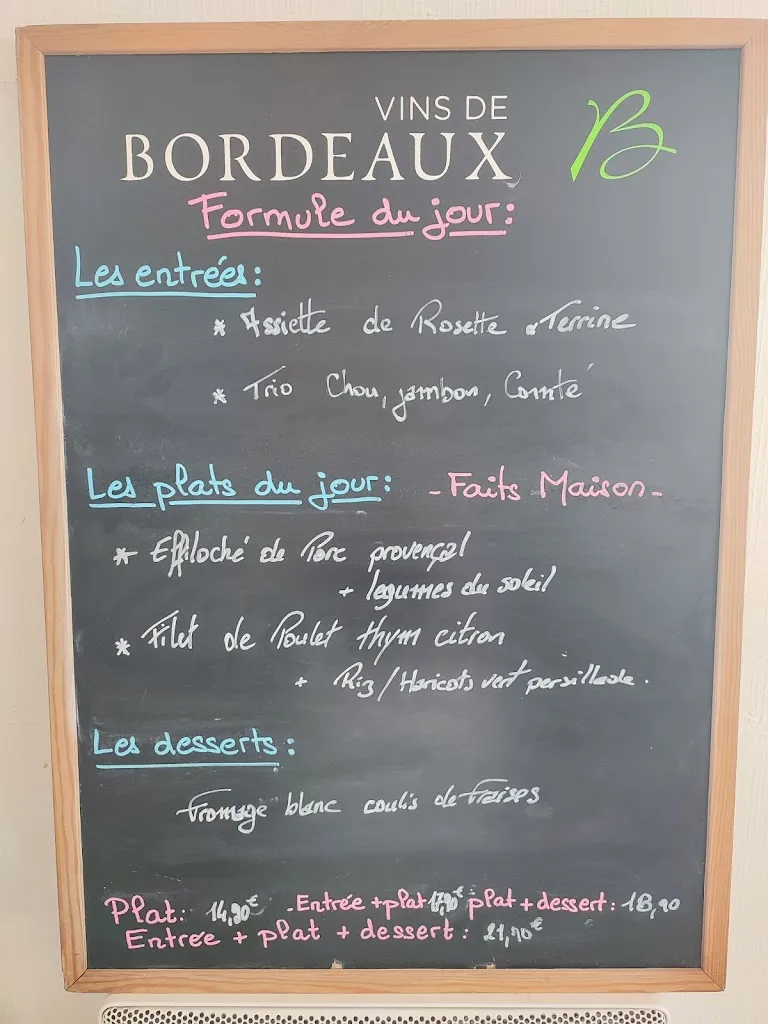 VINS DE
BORDEAUX B
Formule du jour:
Les entrées:
* Assiette de Rosette & Terrine
* Trio Chou, jambon, Comté
Les plats du jour: - Faits Maison -
* Effiloché de Porc provençal
+ légumes du soleil
* Filet de Poulet thym citron
+ Riz/Haricots vert persillade.
Les desserts:
Fromage blanc coulis de Fraises
Plat: 14,90€ - Entrée + plat 17,90€ plat + dessert: 18,90
Entrée + plat + dessert: 21,90€